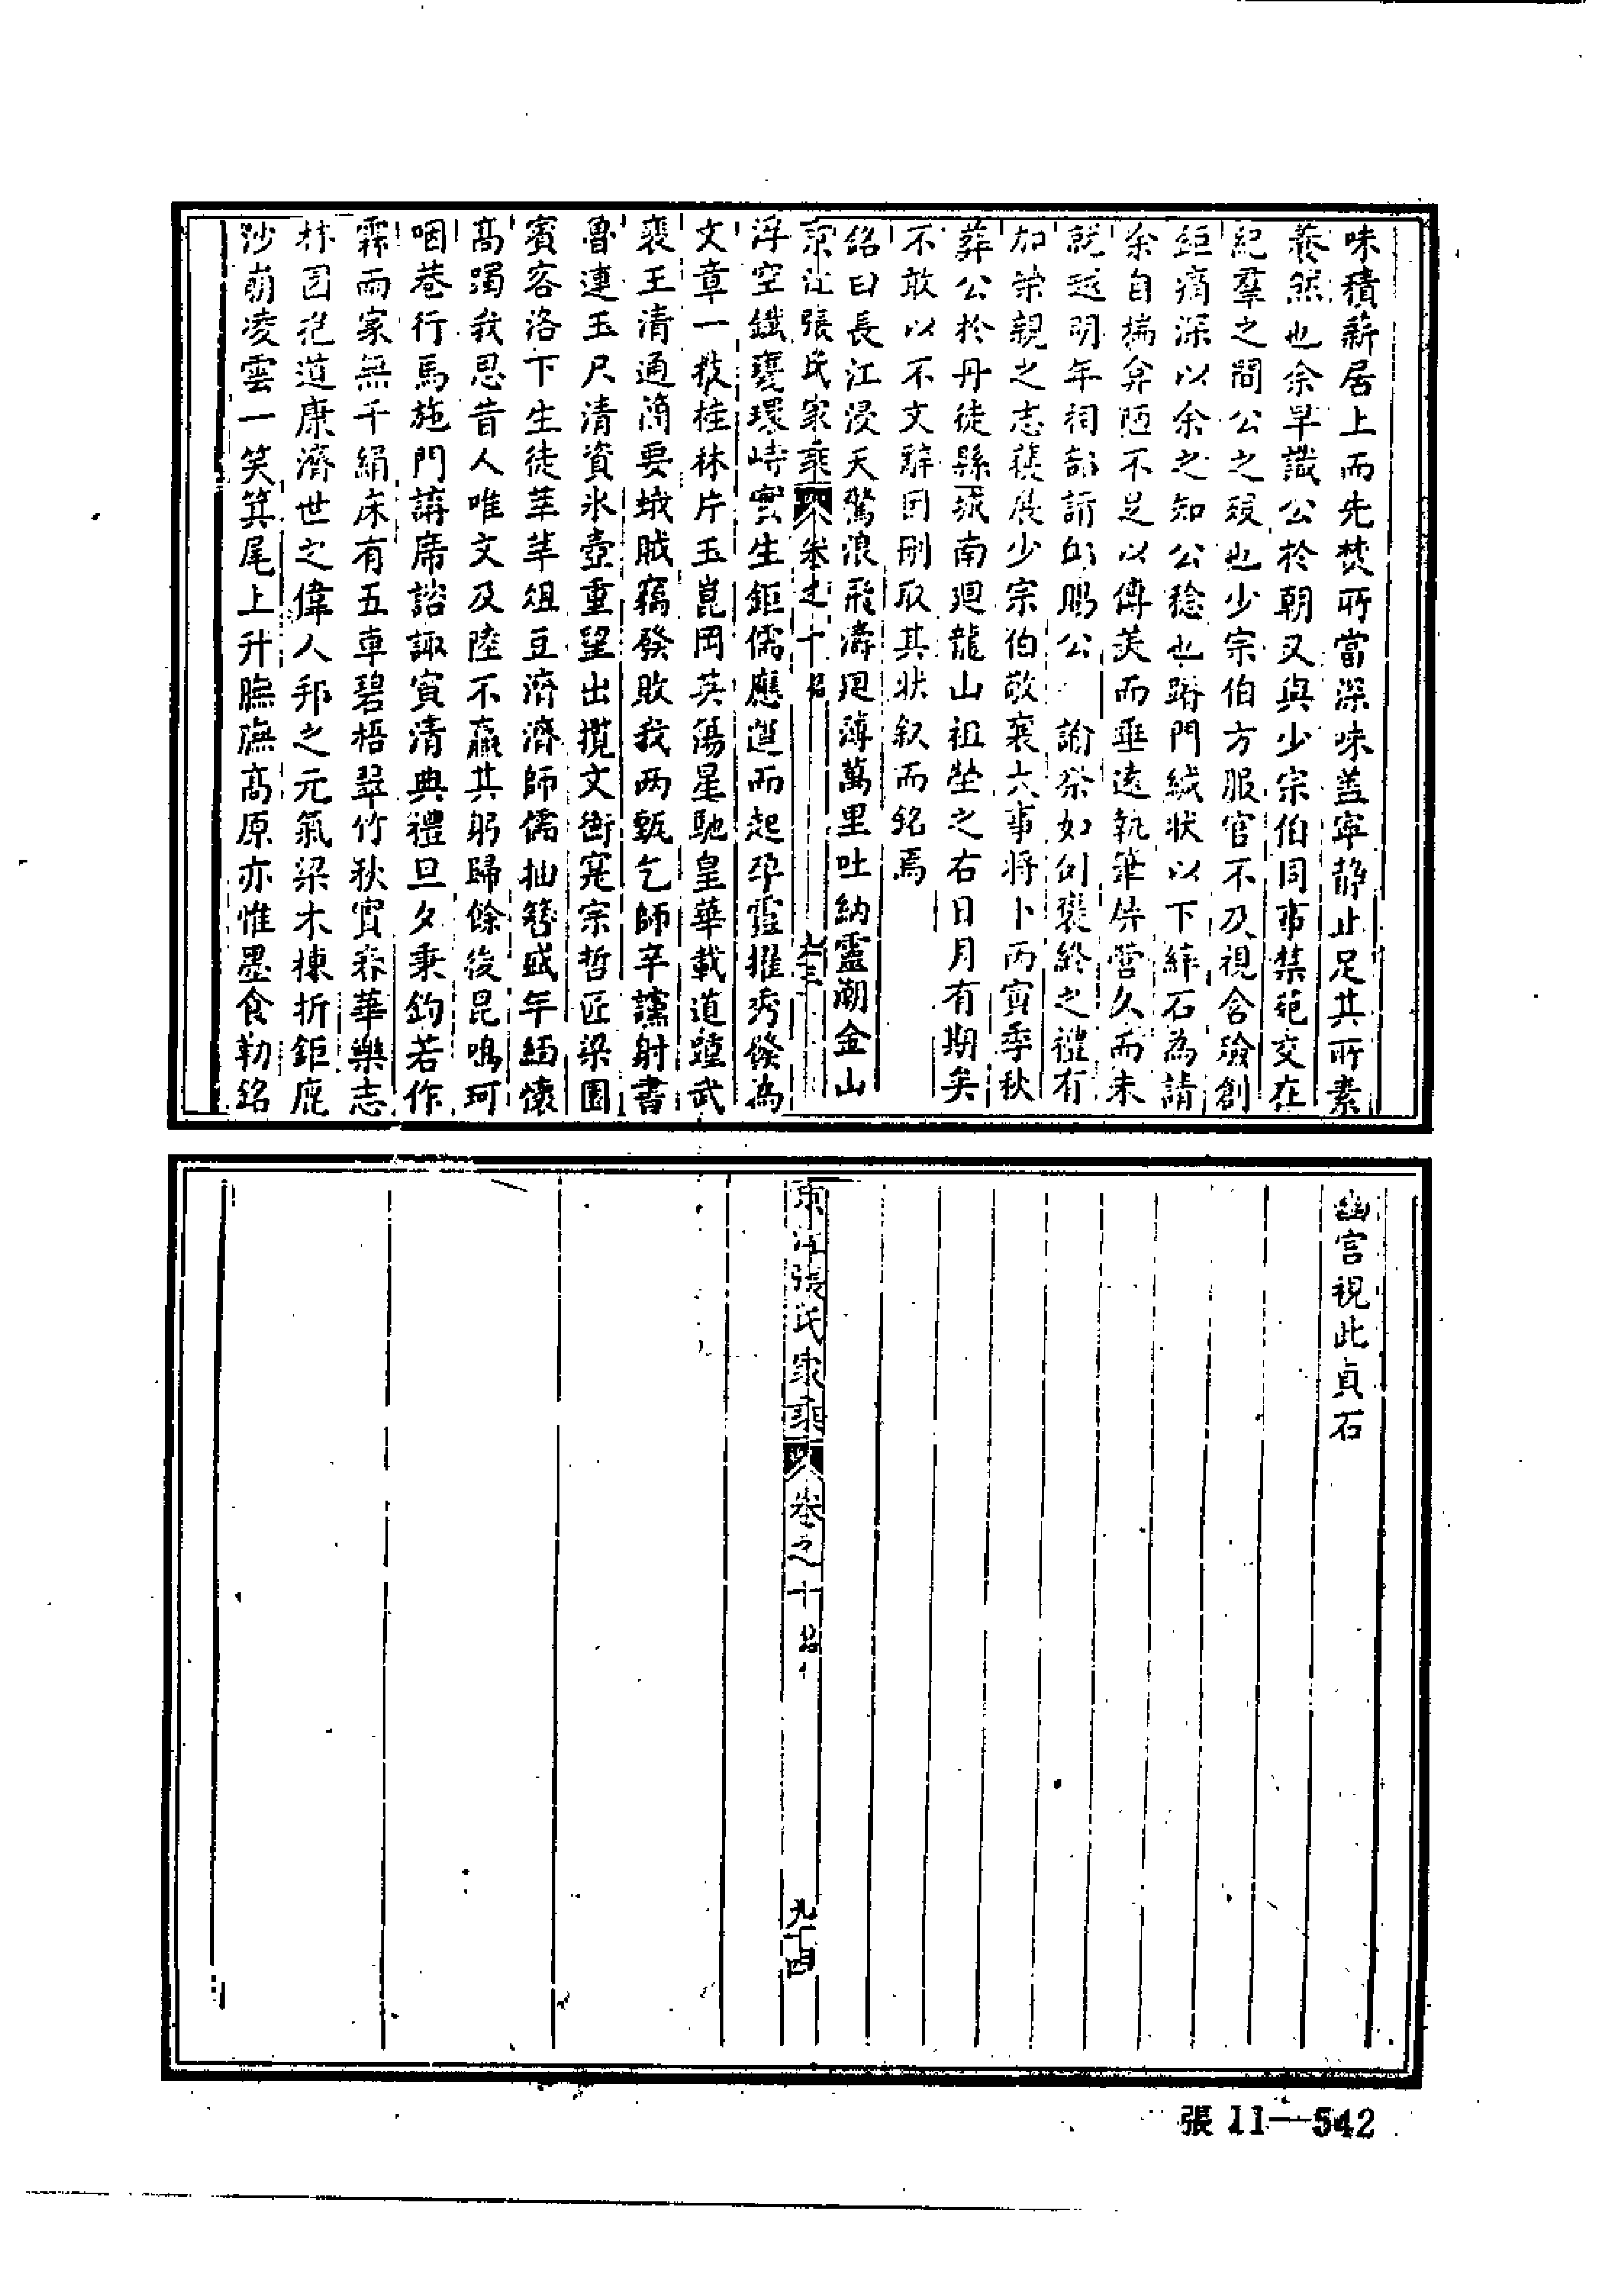 味積薪居上而先焚所當深味蓋寧静止足其所素
養然也余早識公於朝又與少宗伯同事禁苑交在
紀羣之間公之歿也少宗伯方服官不及視含殮創
鉅痛深以余之知公稔也踵門緘状以下綍石為請
余自揣弇陋不足以傳美而垂遠執筆片营久而未
就越明年祠部訢邱賜公 諭祭如例褒終之禮有
加榮親之志獲展少宗伯敬襄大事将卜丙寅季秋
葬公於丹徒縣城南廻龍山祖塋之右日月有期矣
不敢以不文辭因刪取其状叙而銘焉
銘曰長江浸天驚浪飛濤迴薄萬里吐納靈潮金山
京江張氏家乘 卷之十 銘
浮空鐵甕環峙寔生鉅儒應運而起孕靈擢秀發為
文章一枝桂林片玉崑岡英蕩星馳皇華載道踵武
裴王清通簡要蛾賊竊發敗我两甄乞師辛讜射書
魯連玉尺清資氷壺重望出攬文衡寃宗哲匠梁園
賓客洛下生徒莘莘俎豆濟濟師儒抽簪盛年緬懷
高躅我思昔人唯文及陸不羸其躬歸餘後昆鳴珂
咽巷行馬施門講席諮諏寅清典禮旦夕秉鈞若作
霖雨家無千絹床有五車碧梧翠竹秋實春華樂志
林園抱道康濟世之偉人邦之元氣梁木棟折鉅鹿
沙崩凌雲一笑箕尾上升膴膴高原亦惟墨食勒銘
幽宫視此貞石
京江張氏家乘 卷之十 銘 九十四
張 11—542